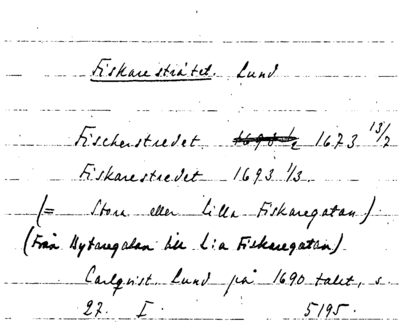 Fiskaresträtet. Lund
Fischerstredet 1690 1/2 1673 13/2
Fiskarestredet 1693 1/3.
(= Stora eller Lilla Fiskaregatan)
(Från Bytaregatan till L:a Fiskaregatan)
Carlqvist, Lund på 1690 talet, s.
27. I. 5195.